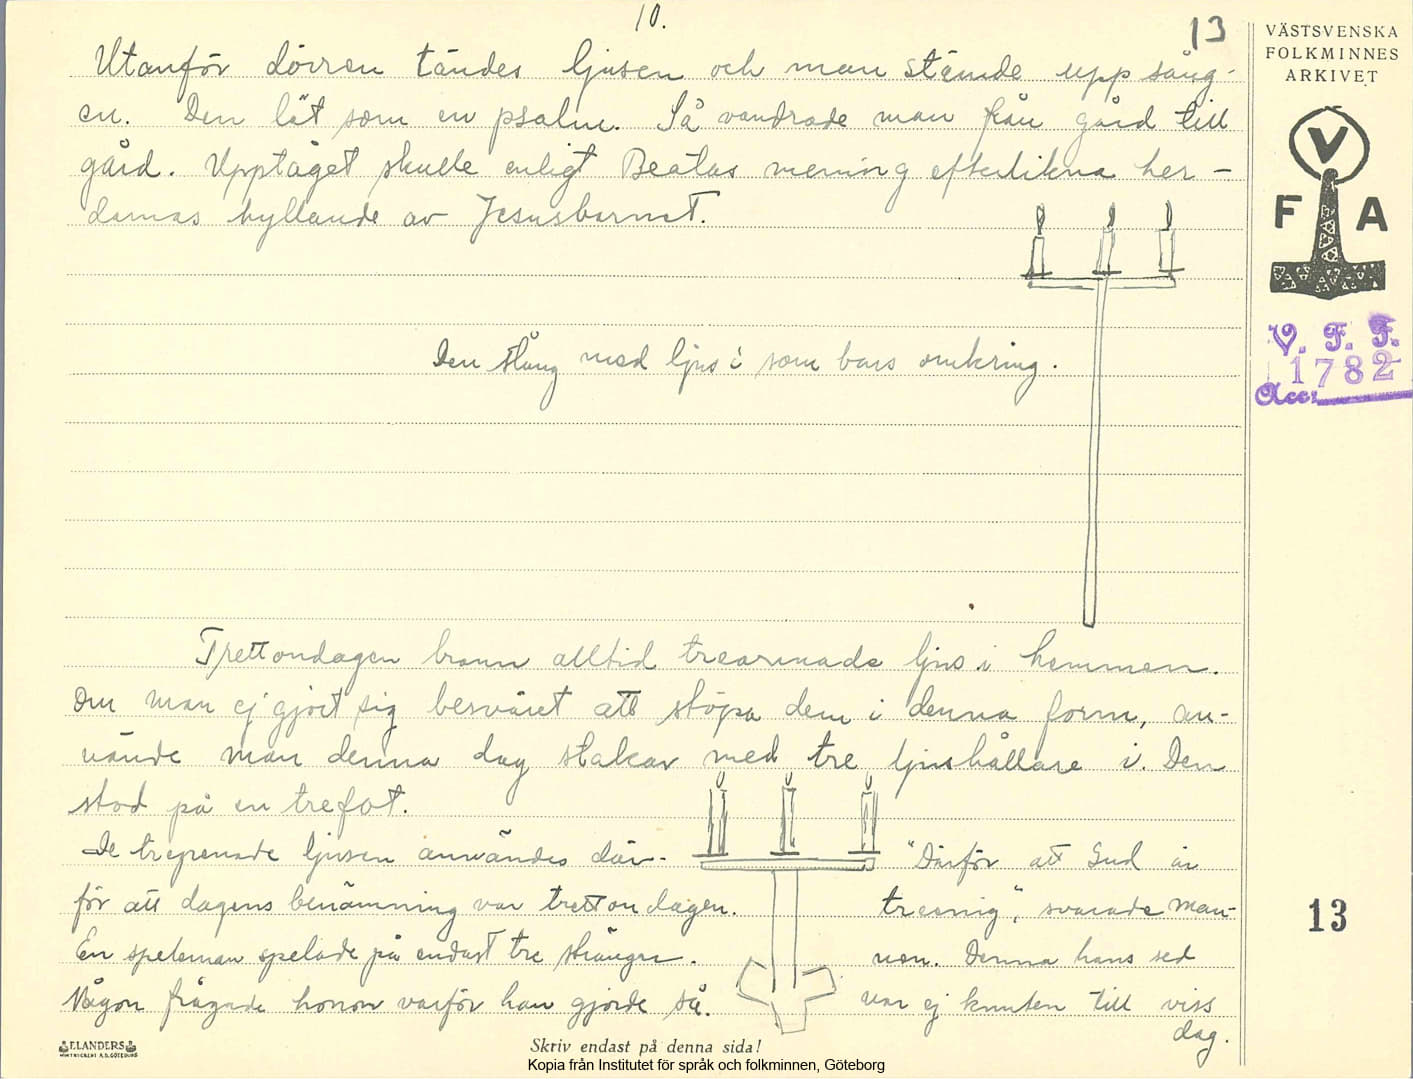 10.
13
Utanför dörren tändes ljusen och man stämde upp sång-
en. Den lät som en psalm. Så vandrade man från gård till
gård. Upptåget skulle enligt Beatas mening efterlikna her-
darnas hyllande av Jesusbarnet.
Den stång med ljus i som bars omkring.
Trettondagen brann alltid trearmade ljus i hemmen.
Om man ej gjort sig besväret att stöpa dem i denna form, an-
vände man denna dag stakar med tre ljushållare i. Den
stod på en trefot.
De tregrenade ljusen användes där-
för att dagens benämning var trettondagen.
En speleman spelade på endast tre strängar.
Någon frågade honom varför han gjorde så.
"Därför att Gud är
treenig", svarade man-
nen. Denna hans sed
var ej knuten till viss
dag.
VÄSTSVENSKA
FOLKMINNES
ARKIVET
V
F A
V. F. F.
1782
Acc:
13
F.LANDERS
Skriv endast på denna sida!
Kopia från Institutet för språk och folkminnen, Göteborg